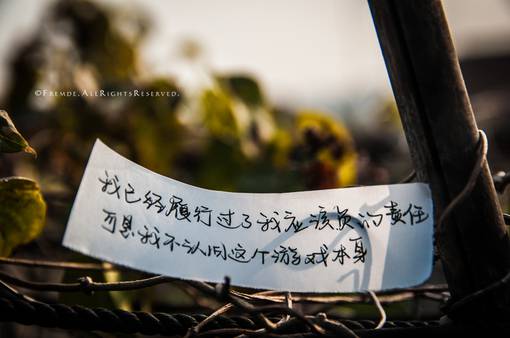 ©FREMDE.ALLRIGHTSRESERVED.
我已经履行过了我应该负的责任
可是我不认同这个游戏本身